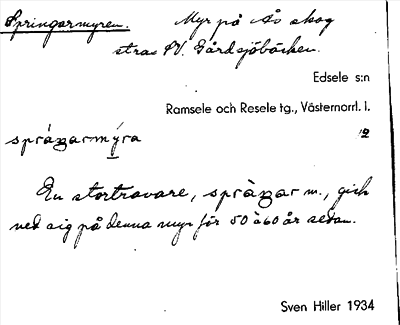 Springarmyren. Myr på Ås skog
strax SV. Gårdsjöbäcken.
Edsele s:n
Ramsele och Resele tg., Västernorrl. l.
språŋarmy̆ra
En stortravare, språŋar m., gick
ned sig på denna myr för 50 à 60 år sedan.
Sven Hiller 1934